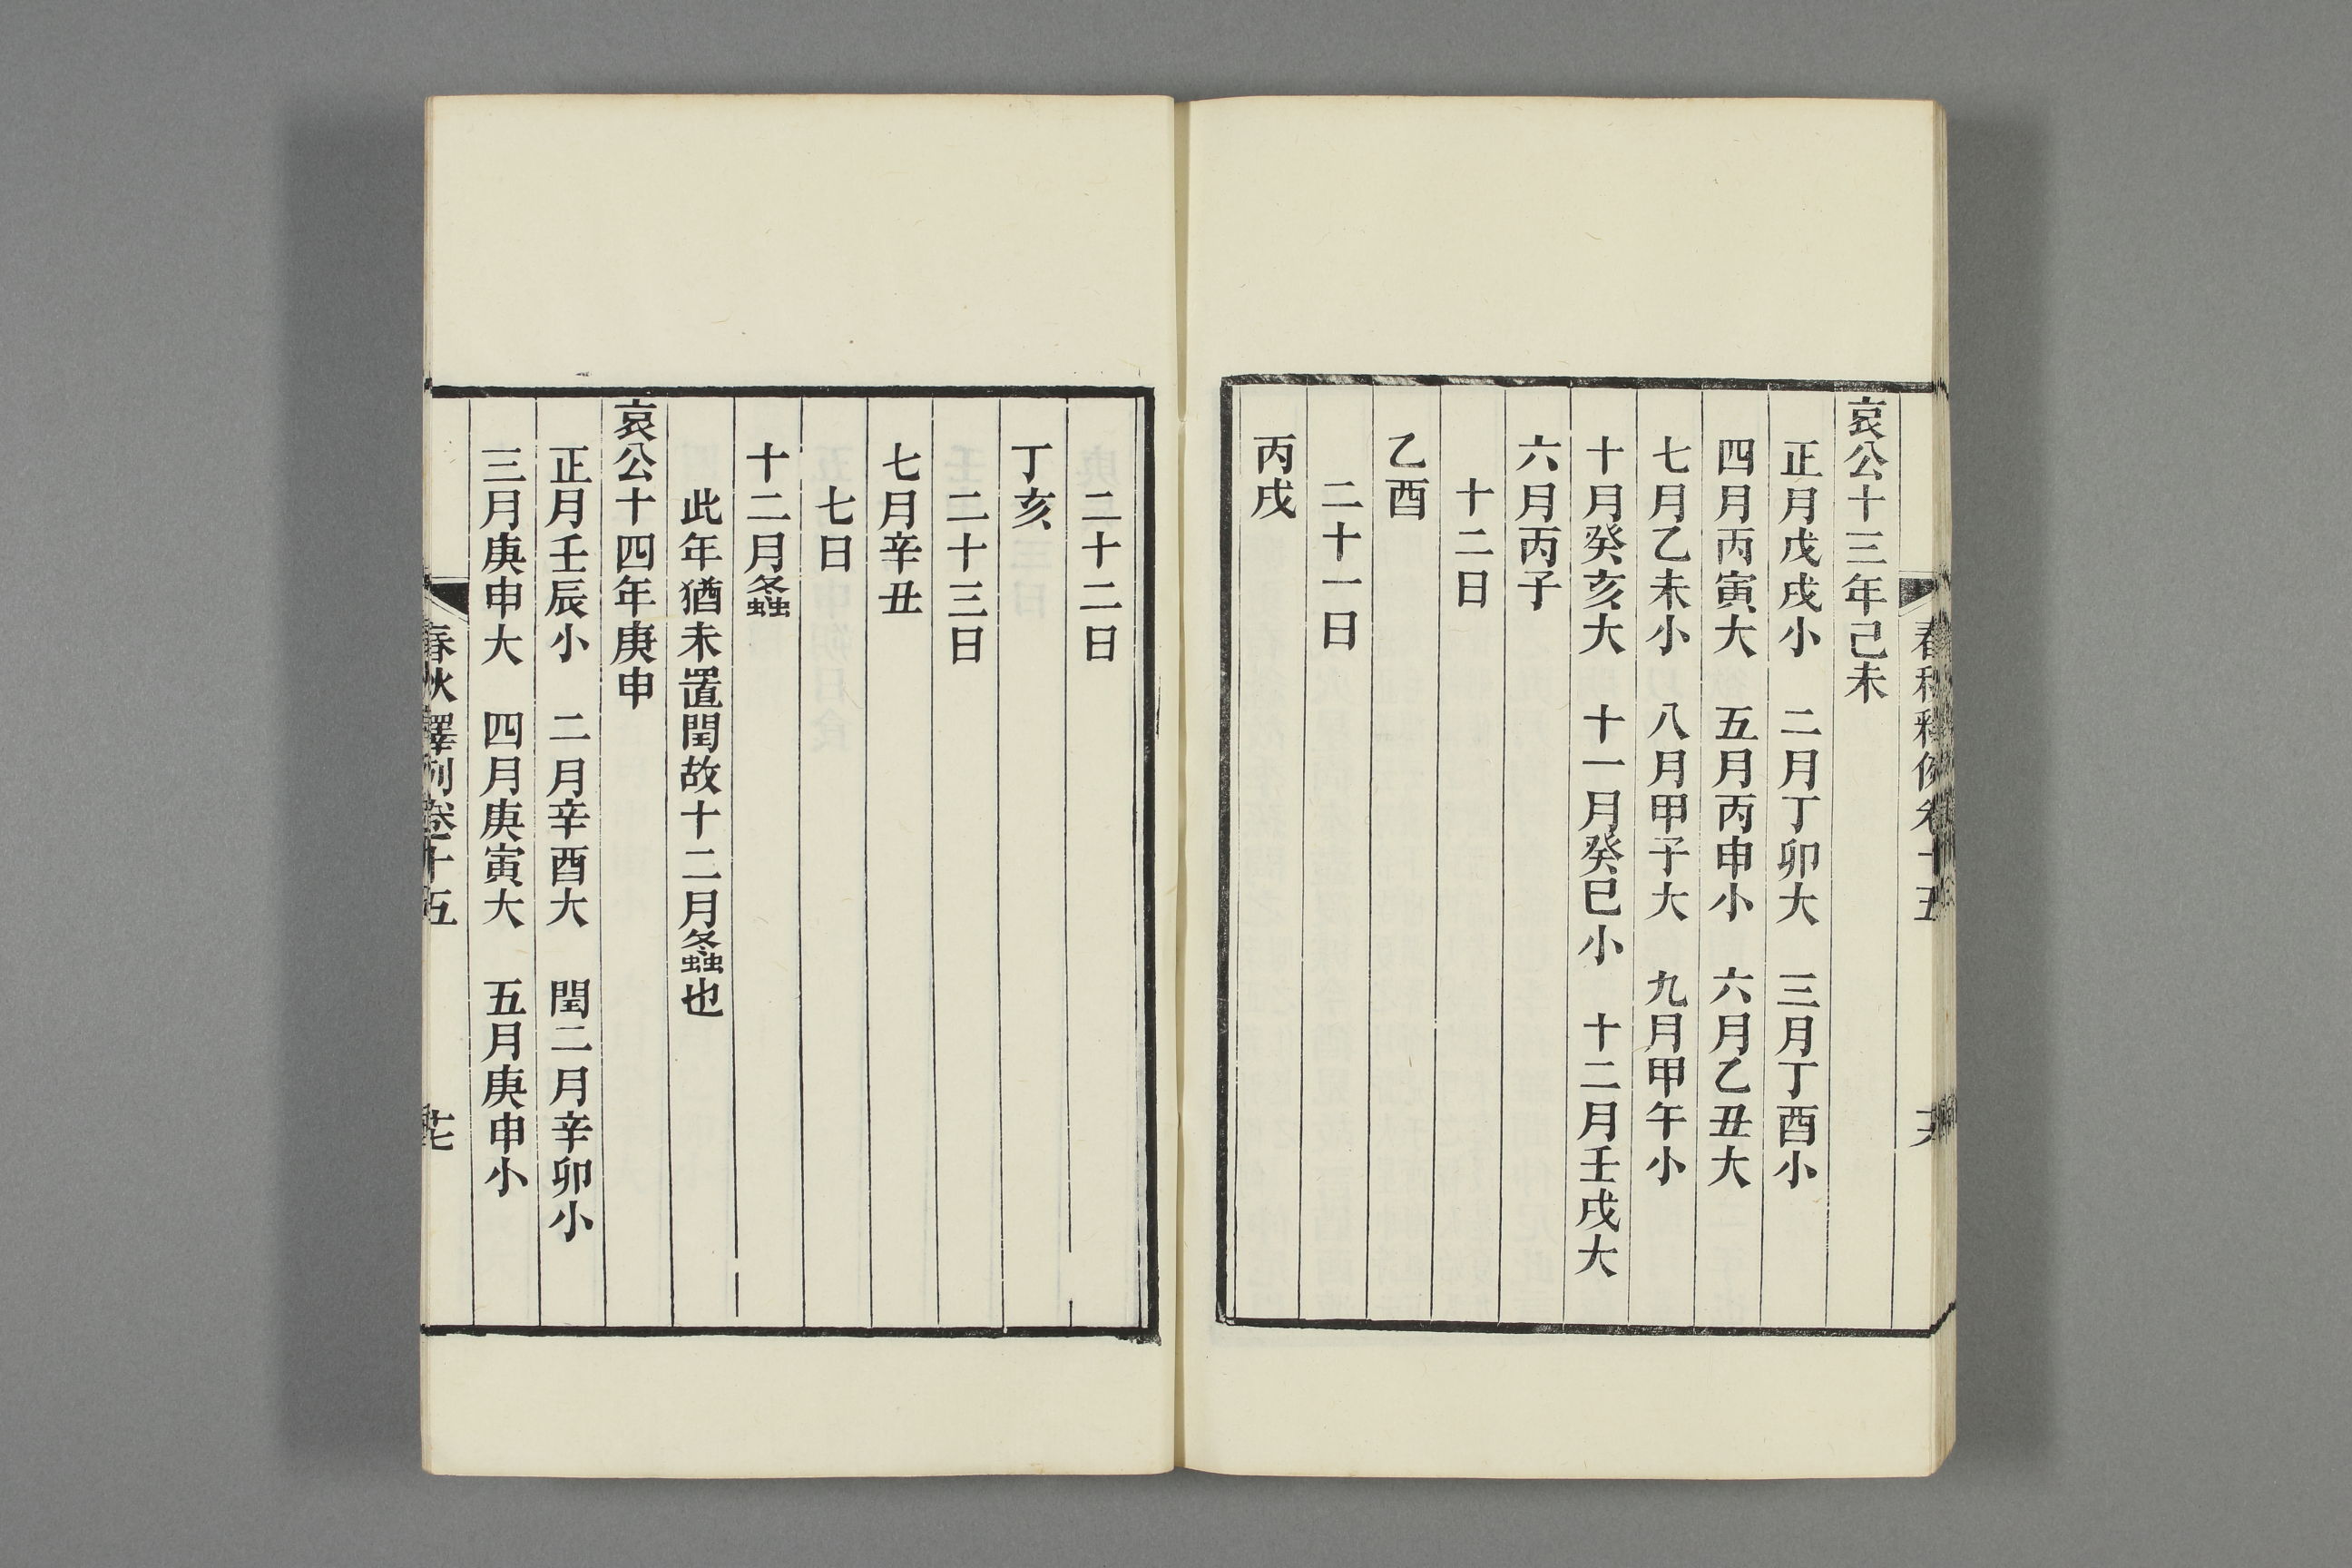 哀公十三年己未
正月戊戌小　二月丁卯大　三月丁酉小
四月丙寅大　五月丙申小　六月乙丑大
七月乙未小　八月甲子大　九月甲午小
十月癸亥大　十一月癸巳小　十二月壬戌大
六月丙子
十二日
乙酉
二十一日
丙戌
二十二日
丁亥
二十三日
七月辛丑
七日
十二月螽
此年猶未置閏故十二月螽也
哀公十四年庚申
正月壬辰小　二月辛酉大　閏二月辛卯小
三月庚申大　四月庚寅大　五月庚申小
春秋釋例卷十五